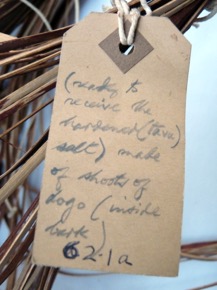 (ready to
receive the
hardened (tava)
salt) made
of shoots of
dogo (inside
bark)
62.1a